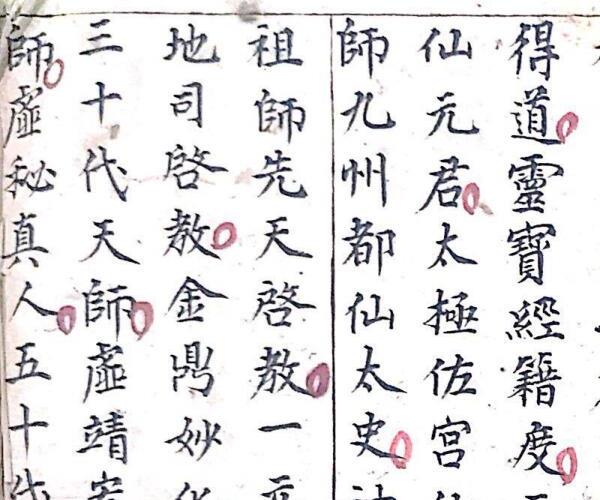 得道靈寶經籍度
仙元君太極佐宮
師九州都仙太史
祖師先天啓教一
地司啓教金鼎妙
三十代天師虛靖
師虛秘真人五十代